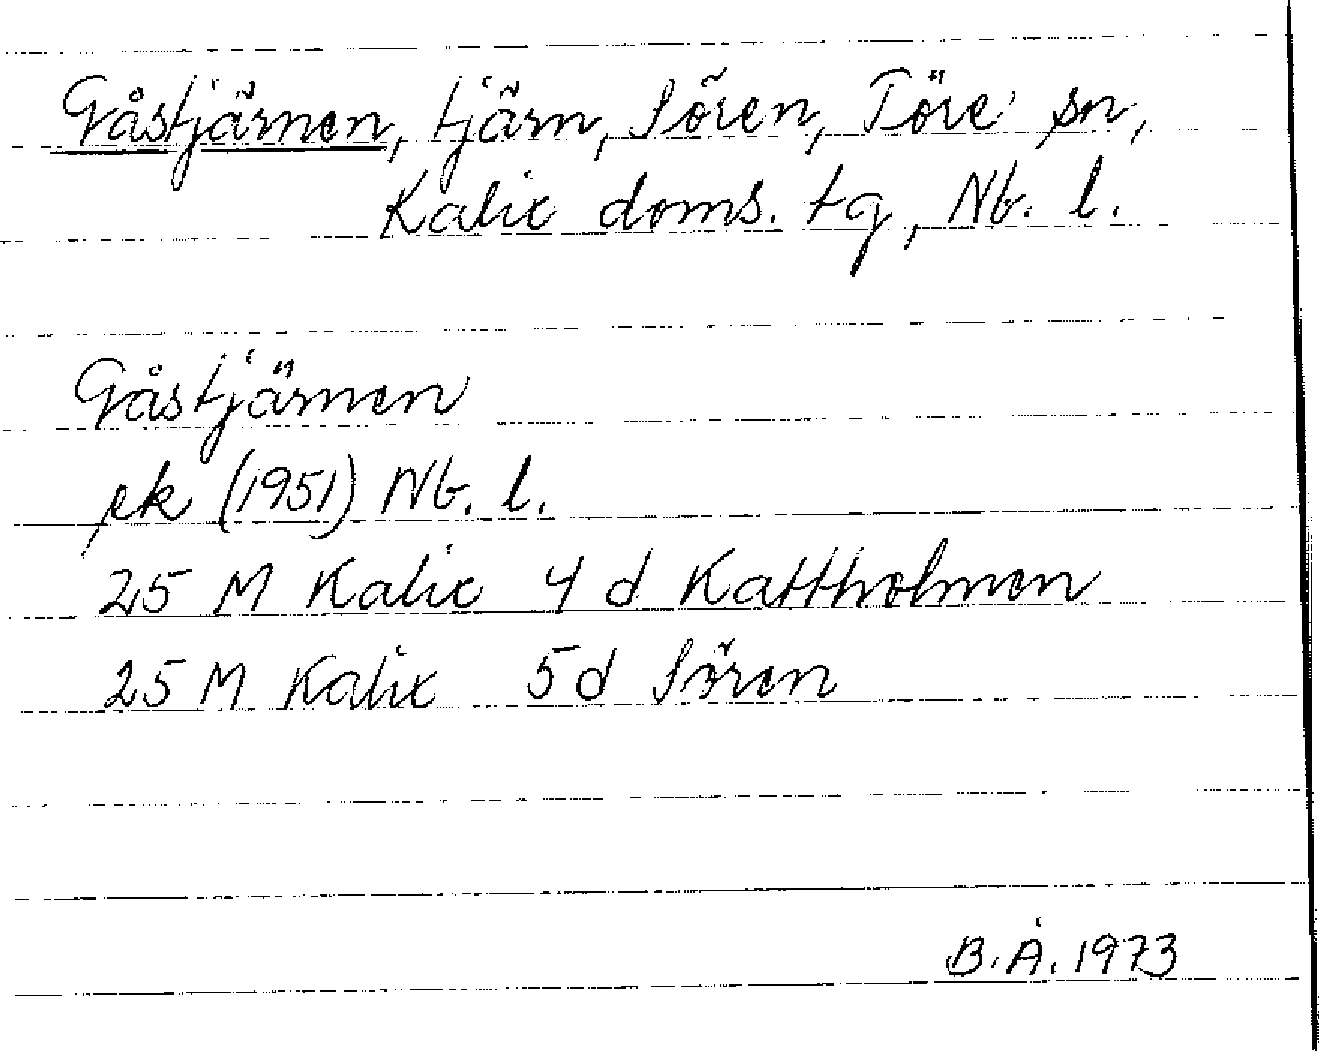 Gåstjärnen, tjärn, Sören, Töre sn,
Kalix doms. tg, Nb. l.
Gåstjärnen
ek (1951) Nb. l.
25 M Kalix 4 d Kattholmen
25 M Kalix 5 d Sören
B.Å. 1973